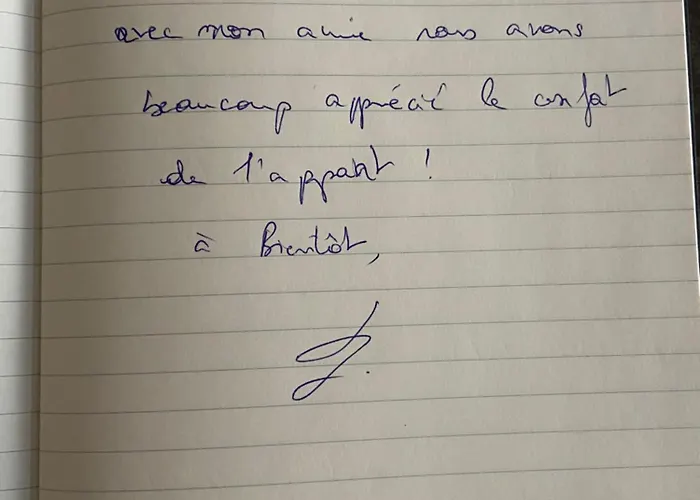 avec mon amie nous avons
beaucoup apprécié le confort
de l'appart !
à Bientôt,
J.